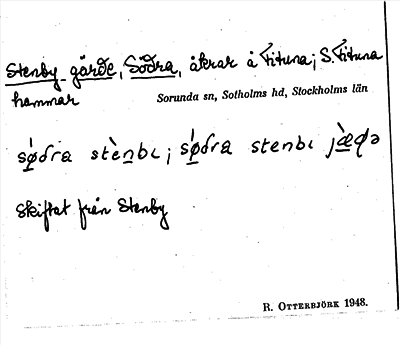 Stenby gärde, Södra, åkrar å Fituna; S. Fituna
hammar
Sorunda sn, Sotholms hd, Stockholms län
sø̀dra stènbɩ; sø̀dra stenbɩ jæ̀ɖə
Skiftat från Stenby
R. OTTERBJÖRK 1948.